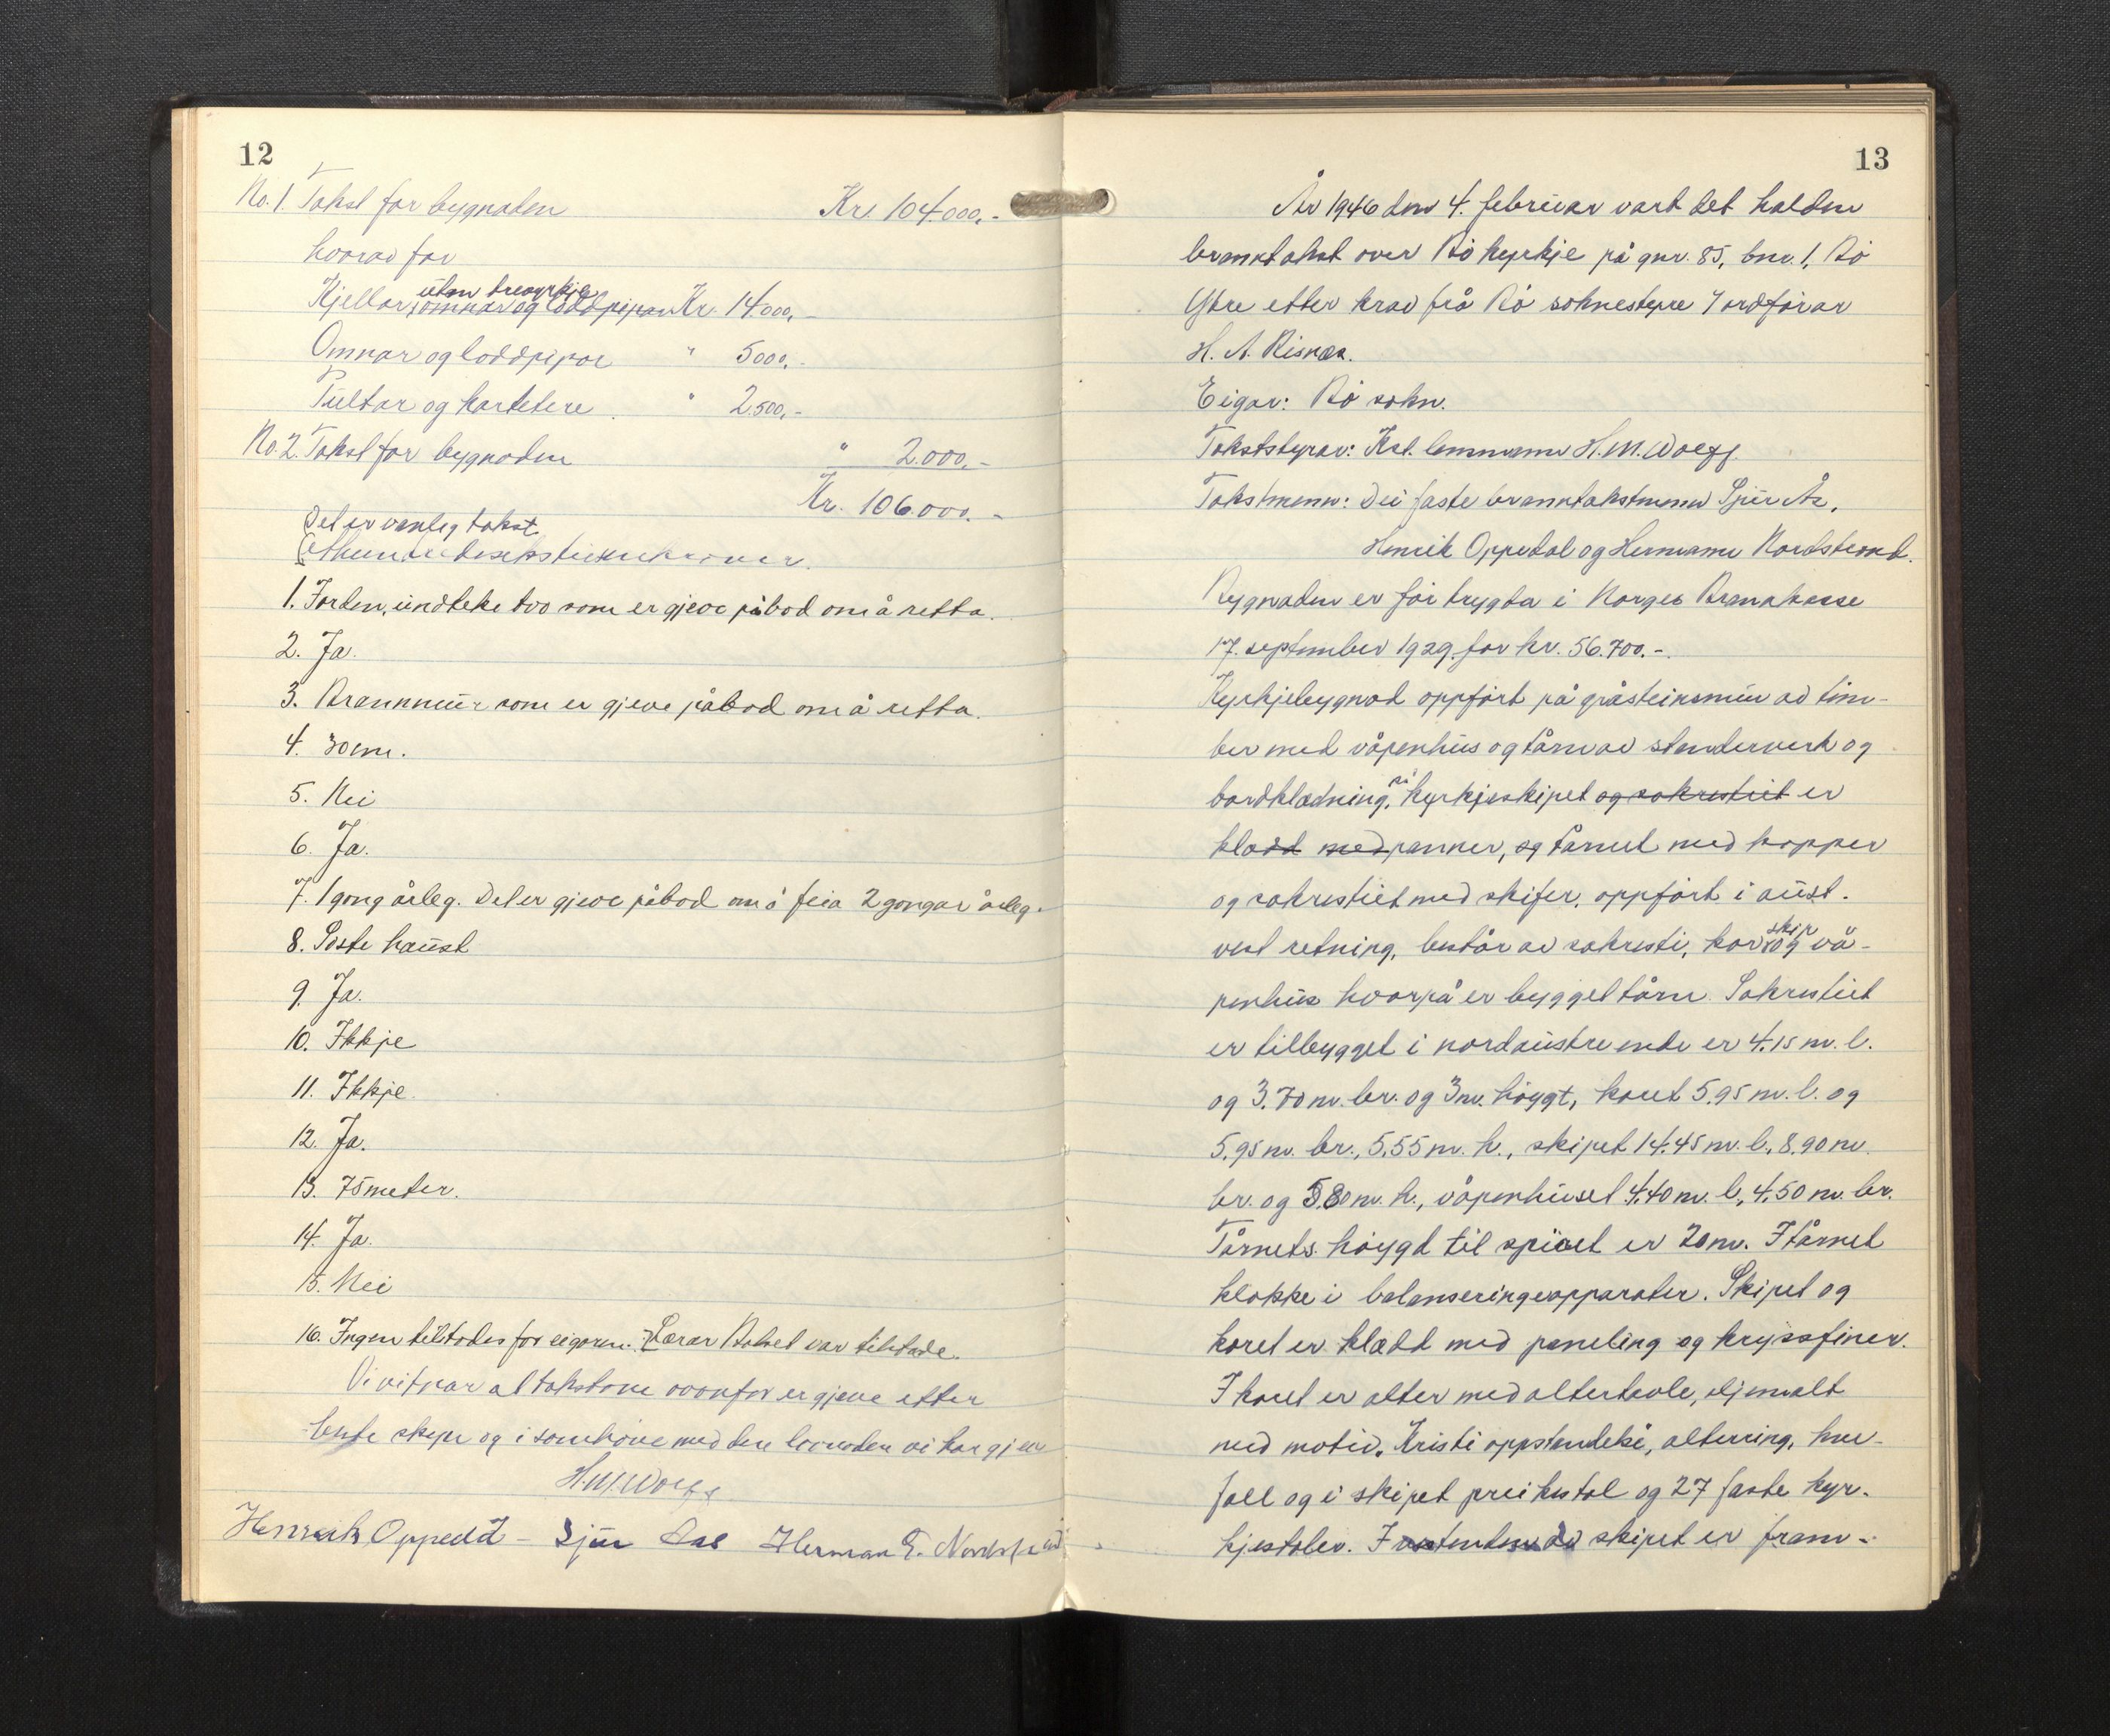 12
No. 1. Takst for bygnaden Kr. 104.000,-
hvorav for
utan treverkje
Kjellar, omnar og loddpipar Kr. 14.000,-
Omnar og loddpipor " 5000,-
Pultar og kartetere " 2.500,-
No. 2. Takst for bygnaden " 2.000,-
Kr. 106.000.-
Det er vanleg takst
1. Jorden, undteke tvo som er gjeve påbod om å retta.
2. Ja.
3. Brannmur som er gjeve påbod om å retta.
4. 30 cm.
5. Nei
6. Ja.
7. 1 gong årleg. Det er gjeve påbod om å feia 2 gongar årleg.
8. Siste haust
9. Ja.
10. Ikkje
11. Ikkje
12. Ja.
13. 75 meter.
14. Ja.
15. Nei
16. Ingen tilstades for eigaren. Lærar var tilstade.
Vi vitnar at takstane ovanfor er gjeve etter
beste skyn og i samhøve med den lovnaden vi har gjeve
H.M. Wolff
Henrik Oppedal - Sjur Aas Herman E. Nordstrand
13
År 1946 den 4. februar vart det halden
branntakst over Bø kyrkje på gnr. 85, bnr. 1, Bø
Ytre etter krav frå Bø soknestyre v/ ordførar
H. A. Risnes.
Eigar: Bø sokn.
Takststyrar: Kst. lensmann H.M. Wolff
Takstmenn: Dei faste branntakstmenn Sjur Ås,
Henrik Oppedal og Hermann Nordstrand.
Bygnaden er før trygda i Norges Brannkasse
17. september 1929 for kr. 56.700.-
Kyrkjebygnad oppført på gråsteinsmur av tim-
ber med våpenhus og tårn av stenderverk og
bordklædning, på kyrkjeskipet og sakrestiet er
kladd med panner, og tårnet med kopper
og sakrestiet med skifer, oppført i aust-
vest retning, består av sakresti, kor skip og vå-
penhus hvorpå er bygget tårn. Sakrestiet
er tilbygget i nordaustre ende er 4.15 m. l.
og 3.70 m. br. og 3 m. høygt, koret 5.95 m. l. og
5.95 m. br., 5.55 m. h., skipet 14.45 m. l., 8.90 m.
br. og 5.80 m. h., våpenhuset 4.40 m. l., 4.50 m. br.
Tårnets høygd til spiret er 20 m. I tårnet
klokke i balanseringsapparater. Skipet og
koret er klædd med paneling og kryssfiner.
I koret er alter med altertavle, oljemalt
med motiv. Kristi oppstandelse, alterring, kne-
fall og i skipet preikestol og 27 faste kyr-
kjestoler. I vestenden av skipet er fram-